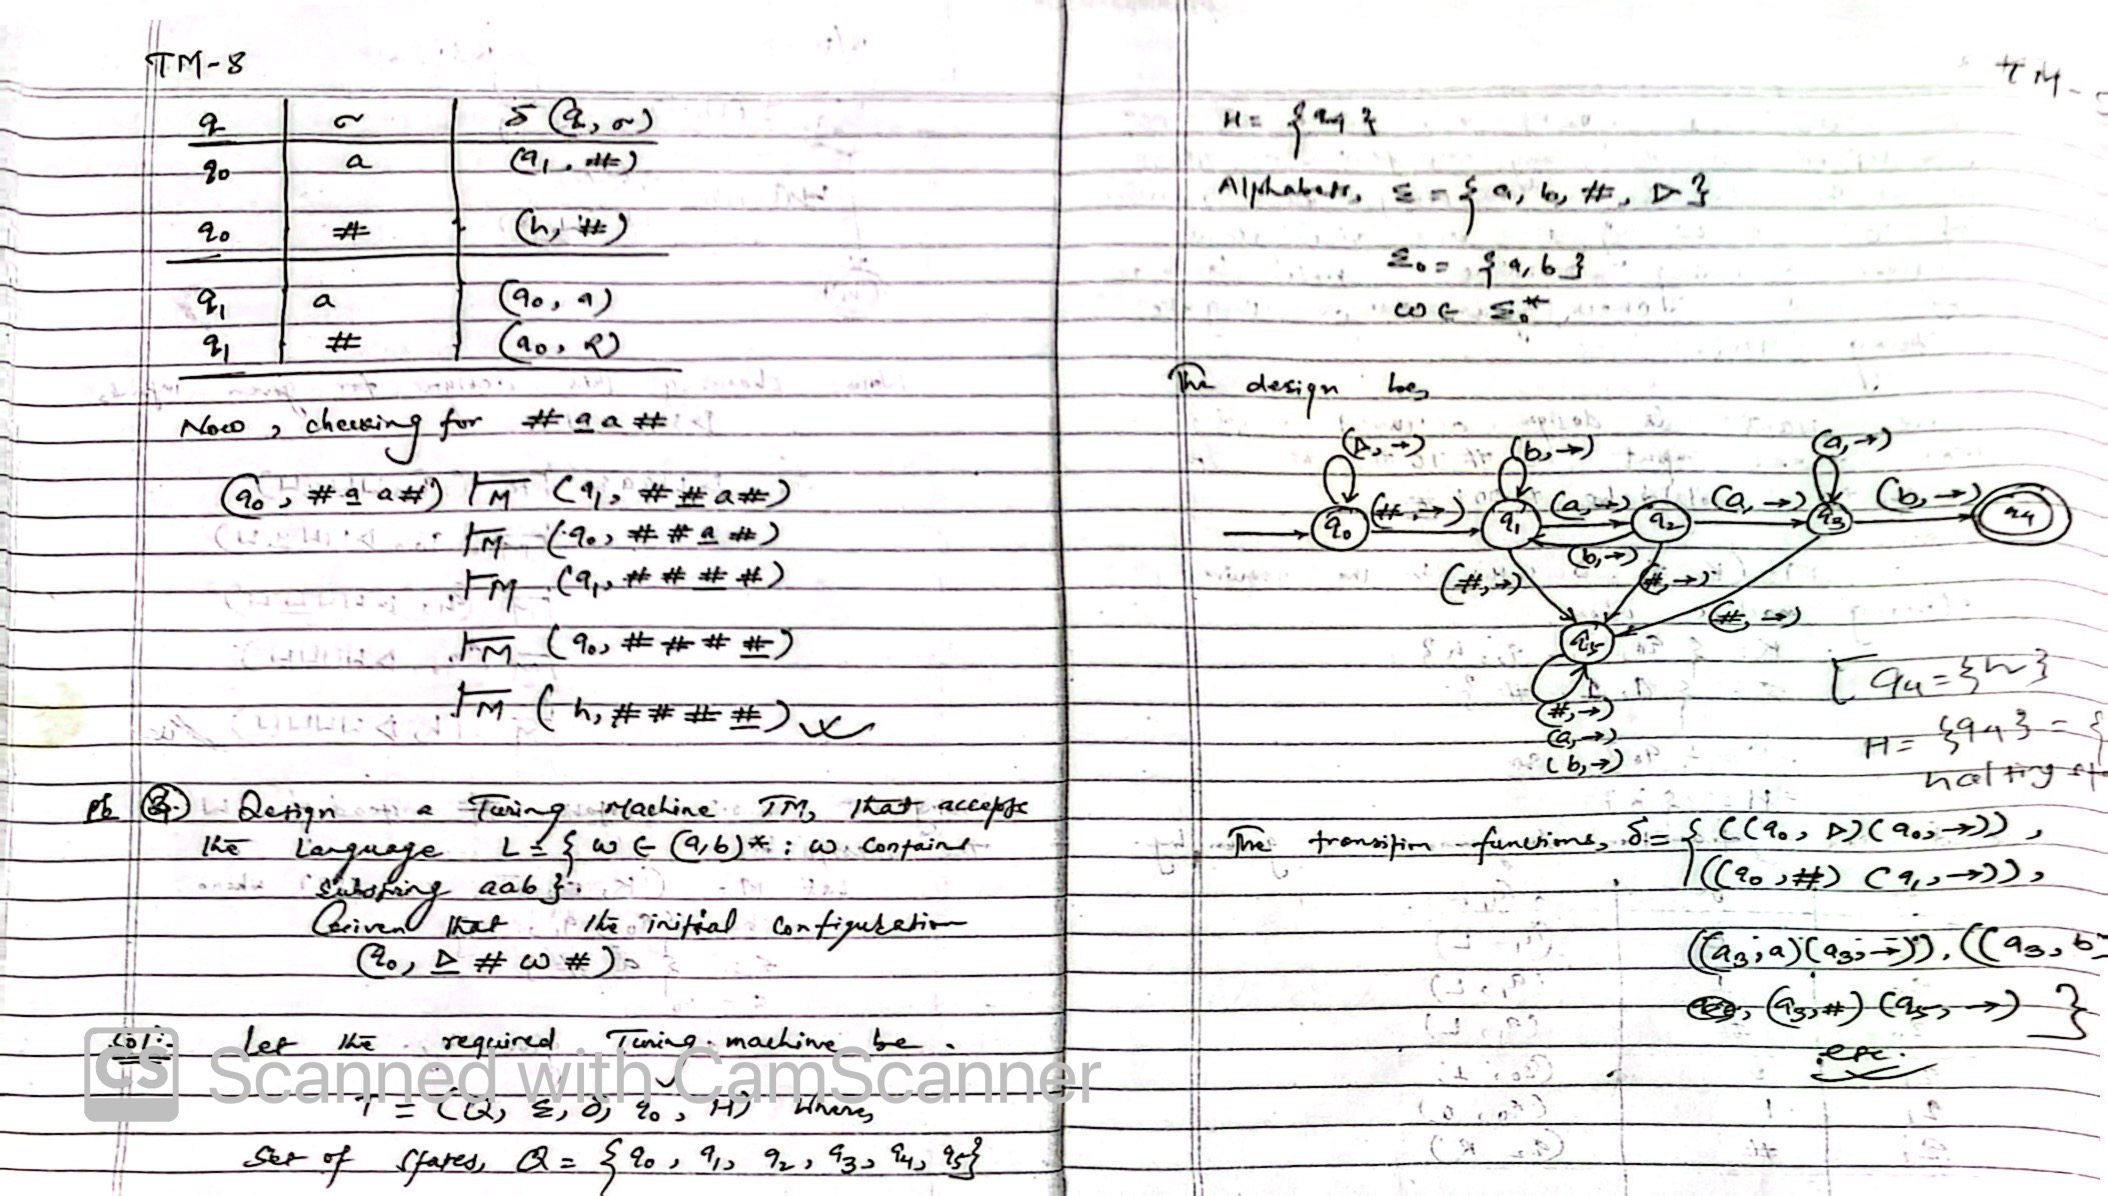 TM-8
q σ δ(q, σ)
q0 a (q1, #)
q0 # (h, #)
q1 a (q0, a)
q1 # (q0, R)
Now, checking for # a a #
(q0, # a a #) ⊢M (q1, # # a #)
⊢M (q0, # # a #)
⊢M (q1, # # # #)
⊢M (q0, # # # #)
⊢M (h, # # # #)
Design a Turing Machine TM, that accepts
the Language L = { w ∈ (a,b)* : w contains
substring aab }.
Given that the initial configuration
(q0, ▷ # w #)
Sol:- Let the required Turing machine be
T = (Q, Σ, δ, q0, H) where,
Set of states, Q = {q0, q1, q2, q3, q4, q5}
CS Scanned with CamScanner
TM-
H = {q4}
Alphabets, Σ = {a, b, #, ▷}
Σ0 = {a, b}
w ∈ Σ0*
The design be,
(▷, →) (b, →) (a, →)
(#, →) (a, →) (a, →) (b, →)
q0 q1 q2 q3 q4
(b, →)
(#, →) (#, →) (#, →)
q5
[q4 = {h}
(#, →)
(a, →)
(b, →)
H = {q4} = {
halting
The transition functions, δ = { ((q0, ▷)(q0, →)),
((q0, #) (q1, →)),
((q3, a)(q3, →)), ((q3, b)
(q3, #) (q5, →) }
etc.